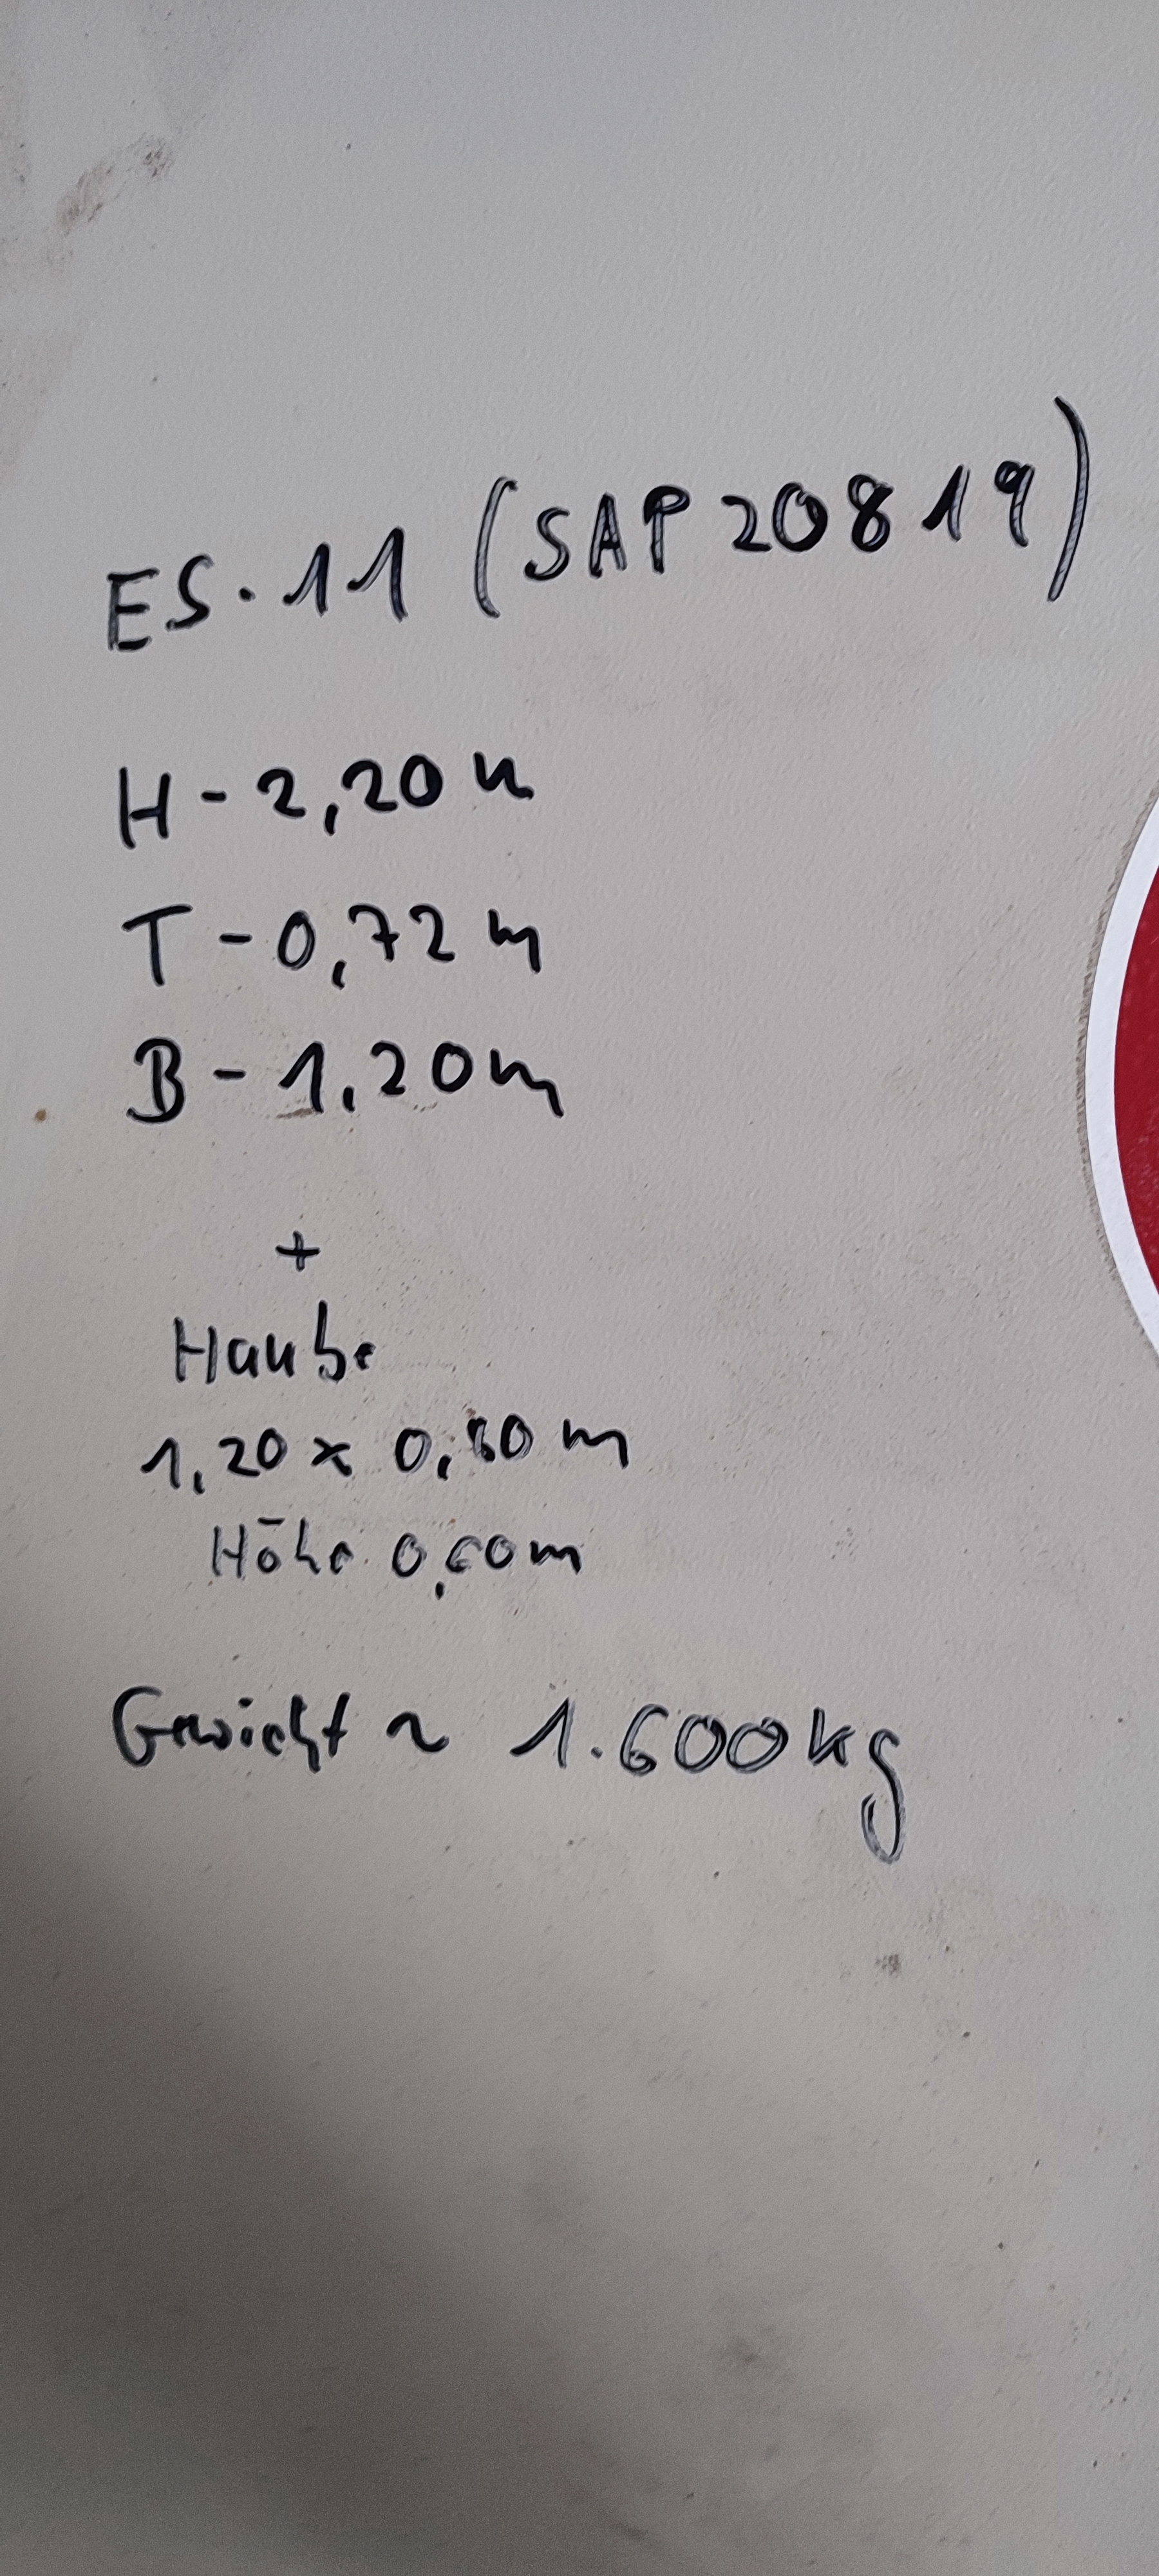 ES.11 (SAP 20819)
H - 2,20 m
T - 0,72 m
B - 1,20 m
+
Haube
1,20 x 0,80 m
Höhe 0,60 m
Gewicht ~ 1.600 kg